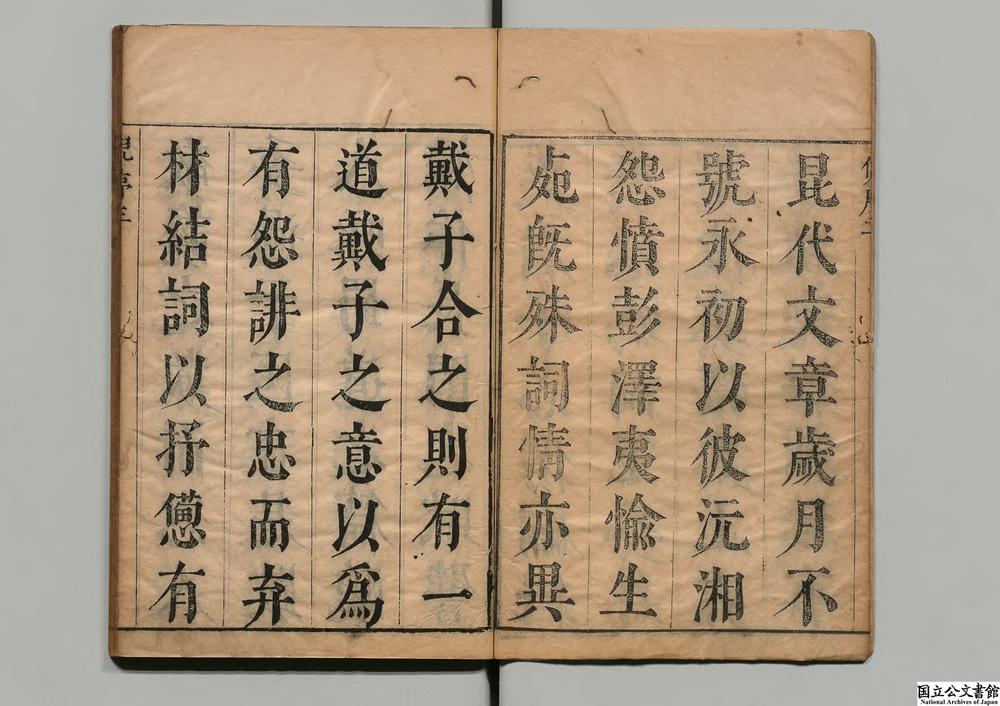 昆代文章歲月不
號永初以彼沅湘
怨憤彭澤夷愉生
處既殊詞情亦異
戴子合之則有一
道戴子之意以爲
有怨誹之忠而弃
材結詞以抒傯有
国立公文書館
National Archives of Japan